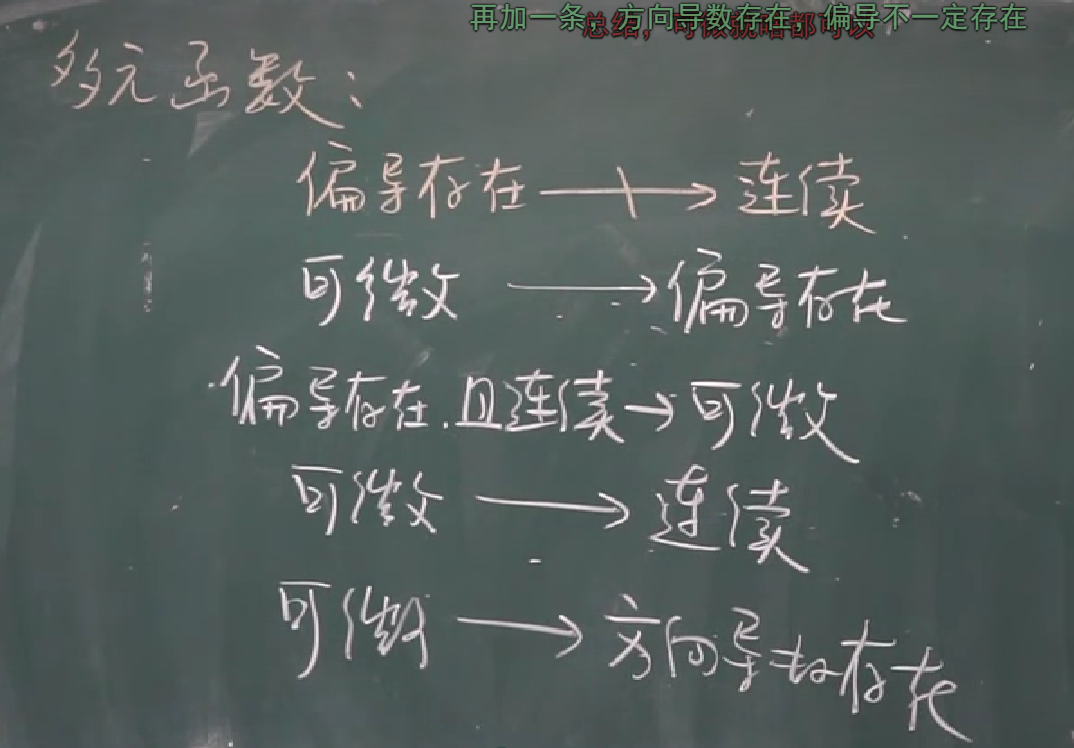 再加一条，方向导数存在，偏导不一定存在
总结，可微就啥都可以
多元函数：
偏导存在 ⇸ 连续
可微 → 偏导存在
偏导存在.且连续 → 可微
可微 → 连续
可微 → 方向导数存在